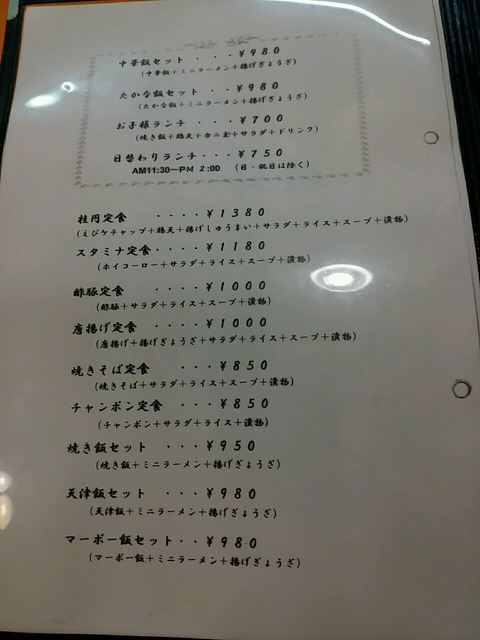 中華飯セット・・・・￥９８０
（中華飯＋ミニラーメン＋揚げぎょうざ）
たかな飯セット・・・￥９８０
（たかな飯＋ミニラーメン＋揚げぎょうざ）
お子様ランチ・・・・￥７００
（焼き飯＋鶏天＋カニ玉＋サラダ＋ドリンク）
日替わりランチ・・・￥７５０
AM11:30～PM 2:00 （日・祝日は除く）
桂円定食 ・・・・￥１３８０
（えびケチャップ＋鶏天＋揚げしゅうまい＋サラダ＋ライス＋スープ＋漬物）
スタミナ定食・・・￥１１８０
（ホイコーロー＋サラダ＋ライス＋スープ＋漬物）
酢豚定食 ・・・￥１０００
（酢豚＋サラダ＋ライス＋スープ＋漬物）
唐揚げ定食 ・・・￥１０００
（唐揚げ＋揚げぎょうざ＋サラダ＋ライス＋スープ＋漬物）
焼きそば定食 ・・・￥８５０
（焼きそば＋サラダ＋ライス＋スープ＋漬物）
チャンポン定食 ・・・￥８５０
（チャンポン＋サラダ＋ライス＋漬物）
焼き飯セット ・・・￥９５０
（焼き飯＋ミニラーメン＋揚げぎょうざ）
天津飯セット ・・・￥９８０
（天津飯＋ミニラーメン＋揚げぎょうざ）
マーボー飯セット・・￥９８０
（マーボー飯＋ミニラーメン＋揚げぎょうざ）